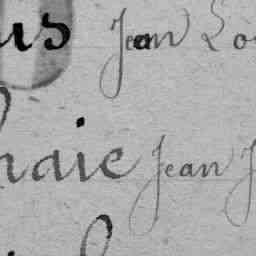 us Jean Lo
haie Jean J